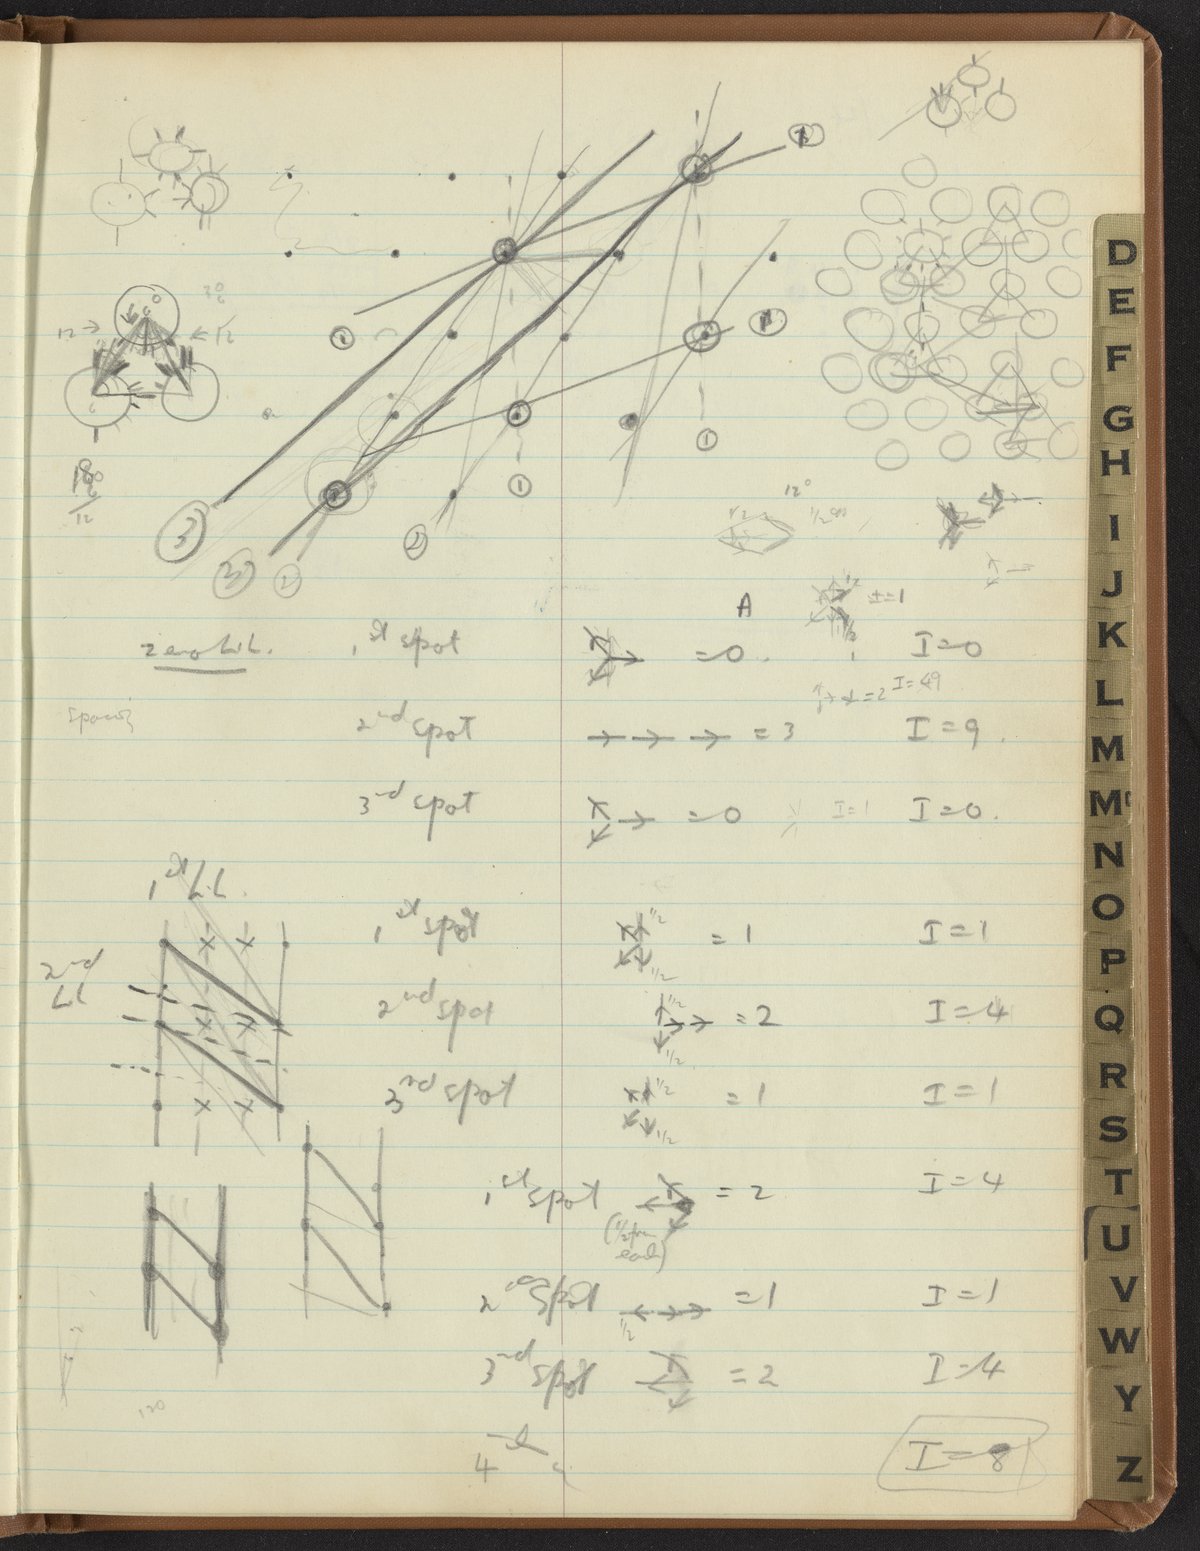 1
2
12
12
180
12
1
1
3
3
2
2
12°
1/2
A
1/2 I=1
1/2
zero L.L. 1st spot =0. I=0
=2 I=49
2nd spot → → → = 3 I=9.
3rd spot =0 I=1 I=0.
1st LL.
1st spot 1/2 = 1 I=1
1/2
2nd
LL
2nd spot 1/2 = 2 I=4
1/2
3rd spot 1/2 = 1 I=1
1/2
1st spot = 2 I=4
(1/2 from
each)
2nd spot = 1 I=1
1/2
3rd spot = 2 I=4
120
4th I=8
D
E
F
G
H
I
J
K
L
M
Mc
N
O
P
Q
R
S
T
U
V
W
Y
Z